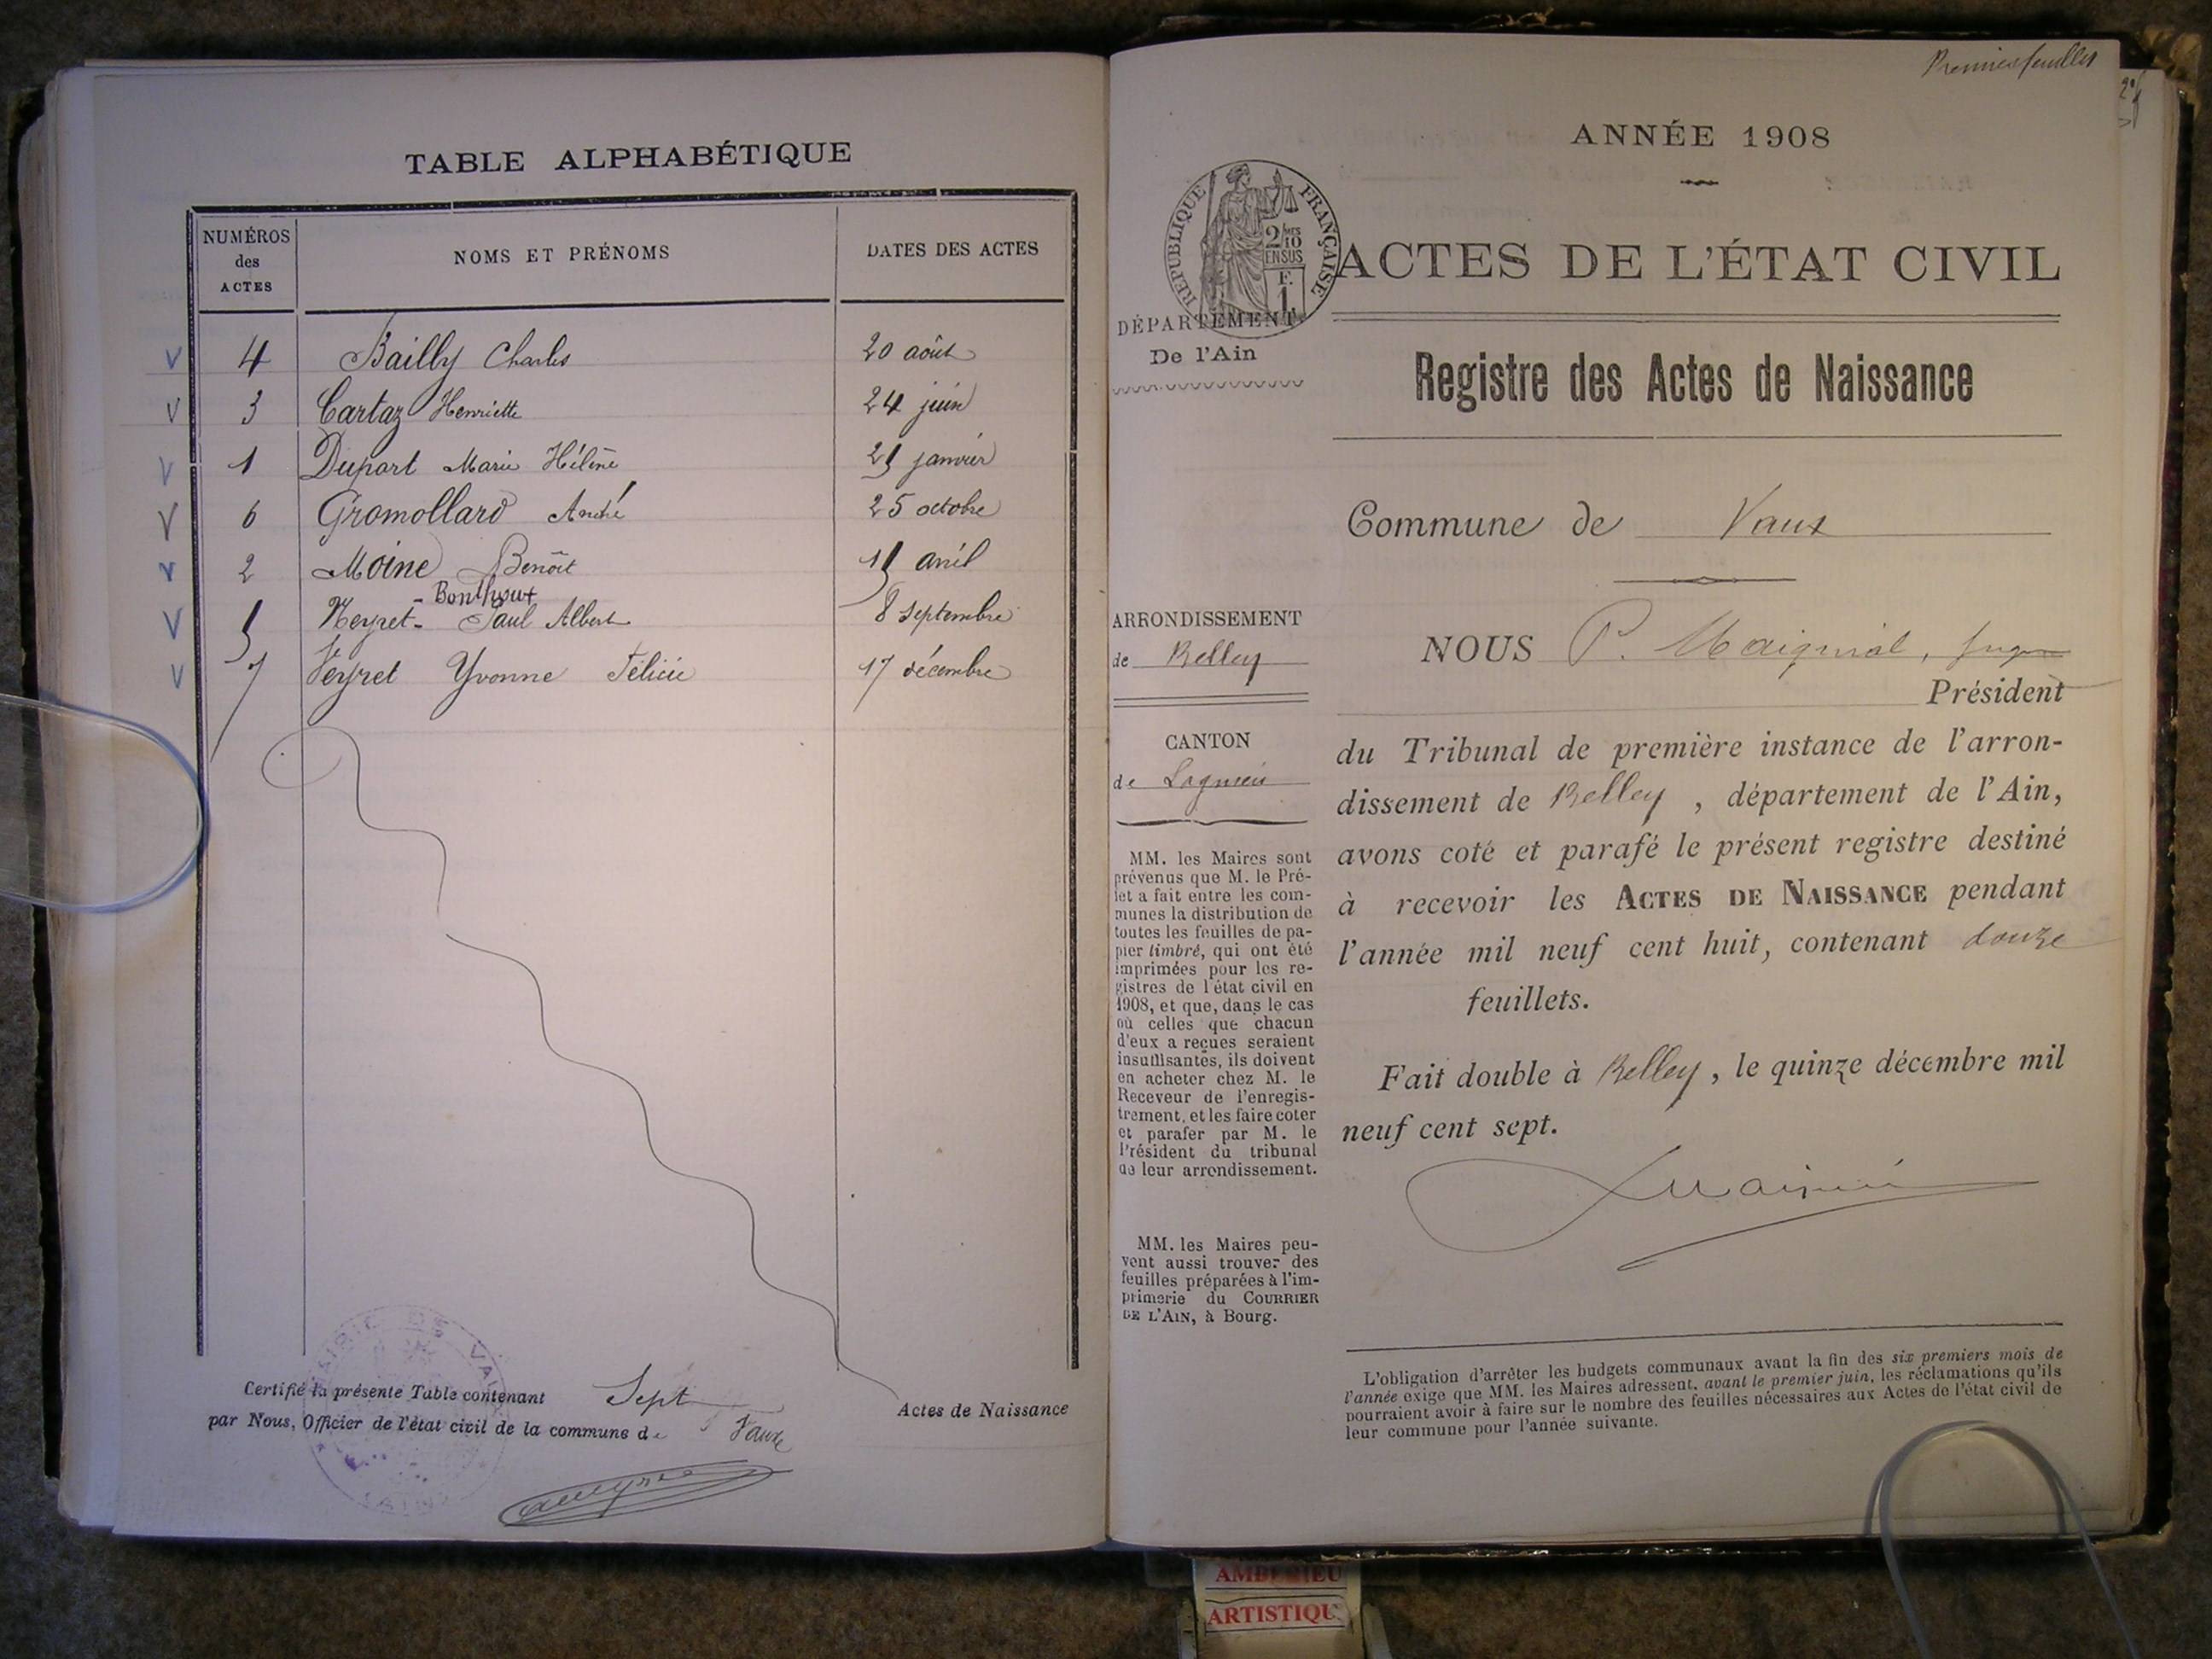 TABLE ALPHABÉTIQUE
NUMÉROS
des
ACTES
NOMS ET PRÉNOMS
DATES DES ACTES
4 Bailly Charles 20 août
3 Cartaz Henriette 24 juin
1 Duport Marie Hélène 25 janvier
6 Gromollard André 25 octobre
2 Moine Benoît 15 avril
Bonthoux
5 Neyret - Paul Albert 8 septembre
7 Veyret Yvonne Félicie 17 décembre
Certifié la présente Table contenant Sept Actes de Naissance
par Nous, Officier de l'état civil de la commune de Vaux
Premier feuillet
ANNÉE 1908
RÉPUBLIQUE FRANÇAISE
2/10
EN SUS
F.
1
ACTES DE L'ÉTAT CIVIL
DÉPARTEMENT
De l'Ain
Registre des Actes de Naissance
Commune de Vaux
ARRONDISSEMENT
de Belley
CANTON
de Lagnieu
MM. les Maires sont
prévenus que M. le Pré-
fet a fait entre les com-
munes la distribution de
toutes les feuilles de pa-
pier timbré, qui ont été
imprimées pour les re-
gistres de l'état civil en
1908, et que, dans le cas
où celles que chacun
d'eux a reçues seraient
insuffisantes, ils doivent
en acheter chez M. le
Receveur de l'enregis-
trement, et les faire coter
et parafer par M. le
Président du tribunal
de leur arrondissement.
MM. les Maires peu-
vent aussi trouver des
feuilles préparées à l'im-
primerie du COURRIER
DE L'AIN, à Bourg.
NOUS P. Maignial, juge
Président
du Tribunal de première instance de l'arron-
dissement de Belley, département de l'Ain,
avons coté et parafé le présent registre destiné
à recevoir les ACTES DE NAISSANCE pendant
l'année mil neuf cent huit, contenant douze
feuillets.
Fait double à Belley, le quinze décembre mil
neuf cent sept.
L'obligation d'arrêter les budgets communaux avant la fin des six premiers mois de
l'année exige que MM. les Maires adressent, avant le premier juin, les réclamations qu'ils
pourraient avoir à faire sur le nombre des feuilles nécessaires aux Actes de l'état civil de
leur commune pour l'année suivante.
AMBERIEU
ARTISTIQU